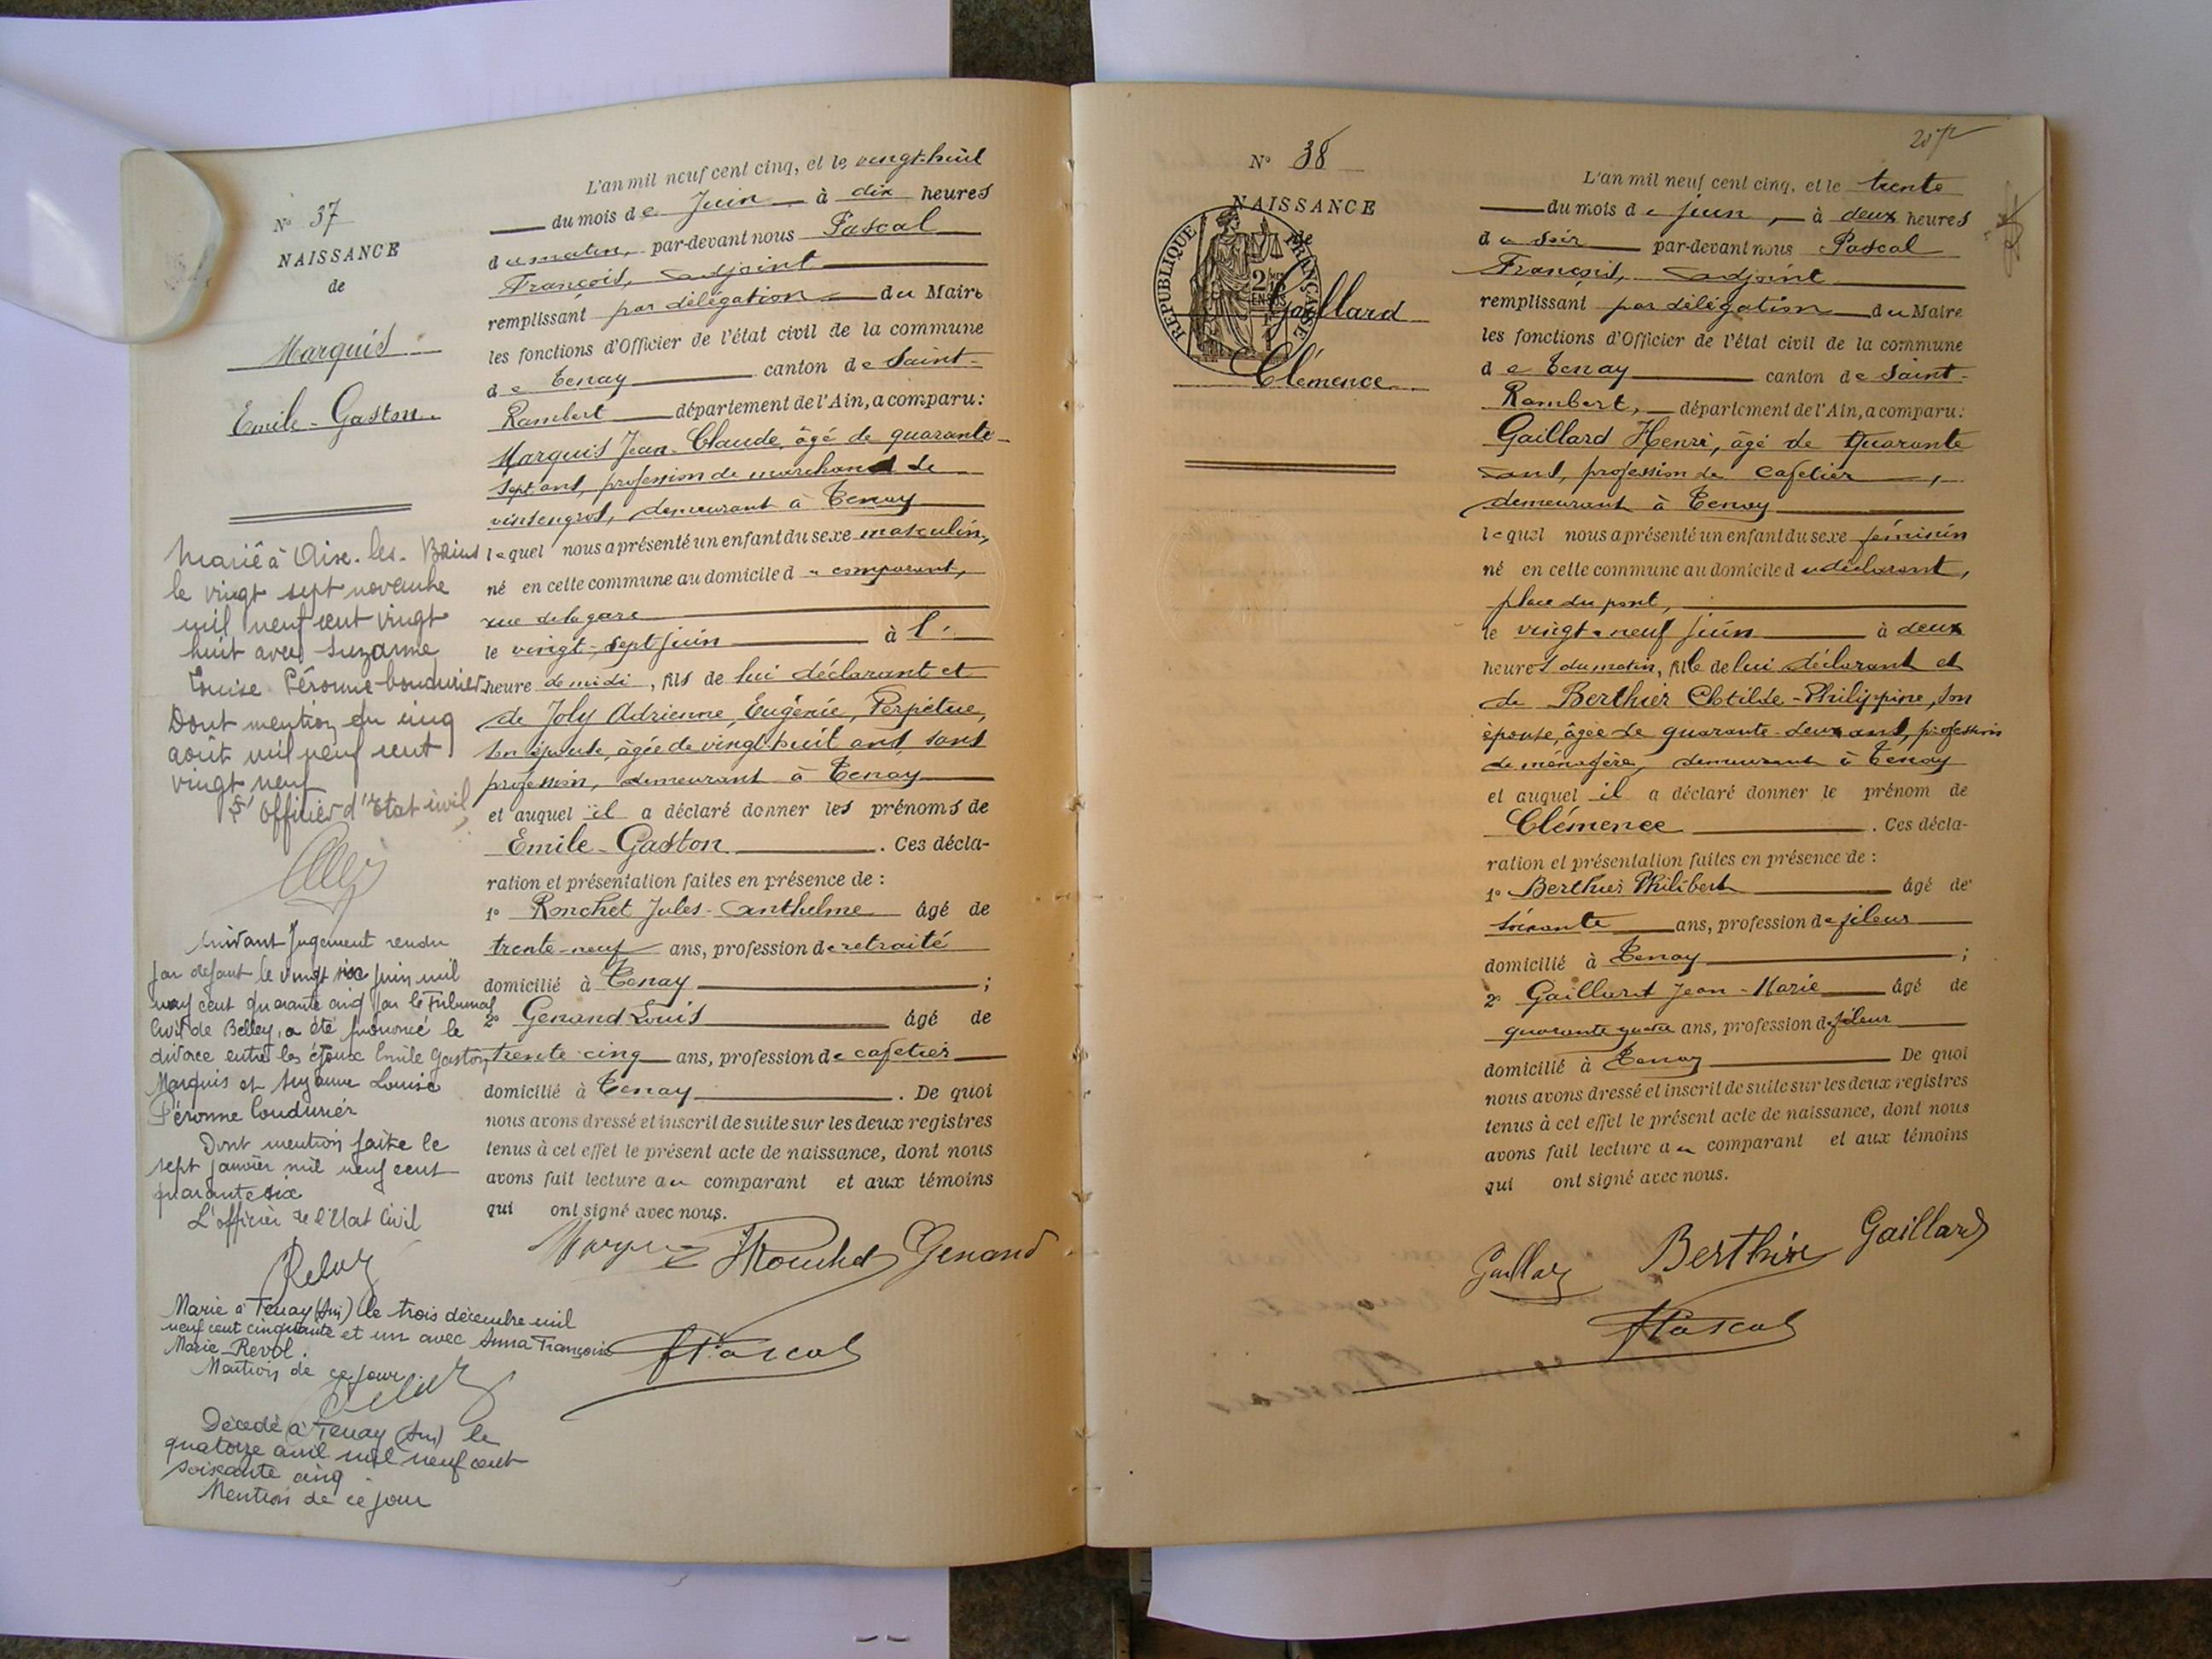 N° 37
NAISSANCE
de
Marquis
Emile-Gaston
L'an mil neuf cent cinq, et le vingt-huit
du mois de Juin à dix heures
du matin, par-devant nous Pascal
François, adjoint
remplissant par délégation du Maire
les fonctions d'Officier de l'état civil de la commune
de Tenay canton de Saint-
Rambert département de l'Ain, a comparu :
Marquis Jean-Claude, âgé de quarante-
sept ans, profession de marchand de
vins en gros, demeurant à Tenay
lequel nous a présenté un enfant du sexe masculin,
né en cette commune au domicile du comparant,
rue de la gare
le vingt-sept juin à l'
heure de midi, fils de lui déclarant et
de Joly Adrienne, Eugénie, Perpétue,
son épouse, âgée de vingt-huit ans, sans
profession, demeurant à Tenay
et auquel il a déclaré donner les prénoms de
Emile-Gaston. Ces décla-
ration et présentation faites en présence de :
1° Ronchet Jules-Anthelme âgé de
trente-neuf ans, profession de retraité
domicilié à Tenay ;
2° Genand Louis âgé de
trente-cinq ans, profession de cafetier
domicilié à Tenay. De quoi
nous avons dressé et inscrit de suite sur les deux registres
tenus à cet effet le présent acte de naissance, dont nous
avons fait lecture au comparant et aux témoins
qui ont signé avec nous.
Marquis JRonchet Genand
FPascal
Marié à Aix-les-Bains
le vingt sept novembre
mil neuf cent vingt
huit avec Suzanne
Louise Péronne-Coudurier
Dont mention du cinq
août mil neuf cent
vingt neuf
L'Officier d'Etat civil,
Suivant Jugement rendu
par défaut le vingt six juin mil
neuf cent quarante cinq par le Tribunal
Civil de Belley, a été prononcé le
divorce entre les époux Emile Gaston
Marquis et Suzanne Louise
Péronne Coudurier
Dont mention faite le
sept janvier mil neuf cent
quarante six
L'officier de l'Etat Civil
Marié à Tenay (Ain) le trois décembre mil
neuf cent cinquante et un avec Anna Françoise
Marie Revol.
Mention de ce jour.
Décédé à Tenay (Ain) le
quatorze avril mil neuf cent
soixante cinq
Mention de ce jour
N° 38
NAISSANCE
de
RÉPUBLIQUE FRANÇAISE
Gaillard
Clémence
L'an mil neuf cent cinq, et le trente
du mois de juin, à deux heures
du soir par-devant nous Pascal
François, adjoint
remplissant par délégation du Maire
les fonctions d'Officier de l'état civil de la commune
de Tenay canton de Saint-
Rambert, département de l'Ain, a comparu :
Gaillard Henri, âgé de Quarante
ans, profession de cafetier,
demeurant à Tenay
lequel nous a présenté un enfant du sexe féminin
né en cette commune au domicile du déclarant,
place du pont,
le vingt-neuf juin à deux
heures du matin, fille de lui déclarant et
de Berthier Clotilde-Philippine, son
épouse, âgée de quarante-deux ans, profession
de ménagère, demeurant à Tenay
et auquel il a déclaré donner le prénom de
Clémence. Ces décla-
ration et présentation faites en présence de :
1° Berthier Philibert âgé de
soixante ans, profession de fileur
domicilié à Tenay ;
2° Gaillard Jean-Marie âgé de
quarante quatre ans, profession de fileur
domicilié à Tenay De quoi
nous avons dressé et inscrit de suite sur les deux registres
tenus à cet effet le présent acte de naissance, dont nous
avons fait lecture au comparant et aux témoins
qui ont signé avec nous.
Gaillard Berthier Gaillard
FPascal